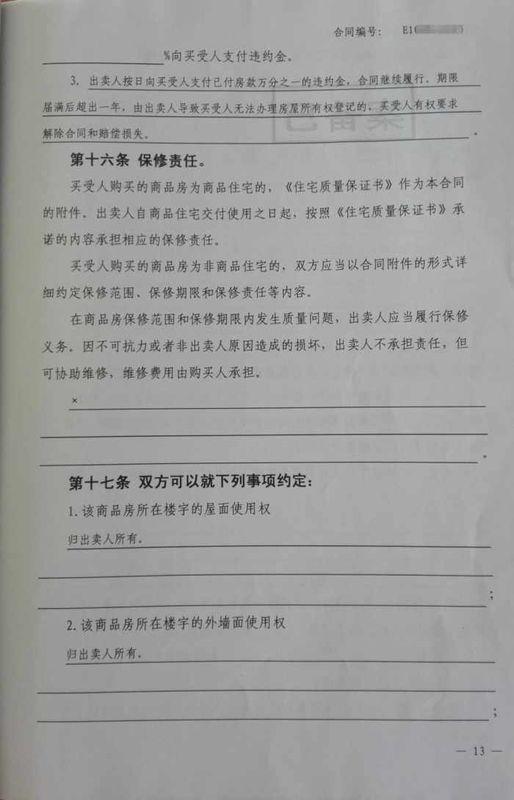 合同编号： E1
%向买受人支付违约金。
3. 出卖人按日向买受人支付已付房款万分之一的违约金，合同继续履行。期限
届满后超出一年，由出卖人导致买受人无法办理房屋所有权登记的，买受人有权要求
解除合同和赔偿损失。 。
第十六条 保修责任。
买受人购买的商品房为商品住宅的，《住宅质量保证书》作为本合同
的附件。出卖人自商品住宅交付使用之日起，按照《住宅质量保证书》承
诺的内容承担相应的保修责任。
买受人购买的商品房为非商品住宅的，双方应当以合同附件的形式详
细约定保修范围、保修期限和保修责任等内容。
在商品房保修范围和保修期限内发生质量问题，出卖人应当履行保修
义务。因不可抗力或者非出卖人原因造成的损坏，出卖人不承担责任，但
可协助维修，维修费用由购买人承担。
×
。
第十七条 双方可以就下列事项约定：
1. 该商品房所在楼宇的屋面使用权
归出卖人所有。
；
2. 该商品房所在楼宇的外墙面使用权
归出卖人所有。
；
— 13 —